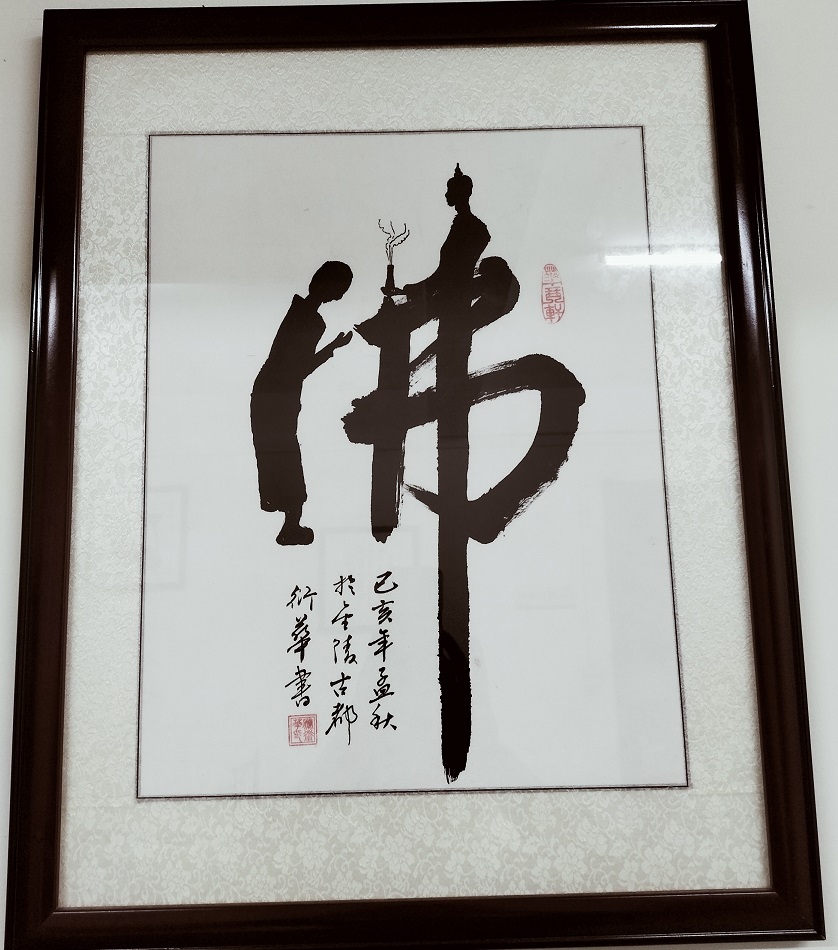 佛
己亥年孟秋
於金陵古都
衍華書